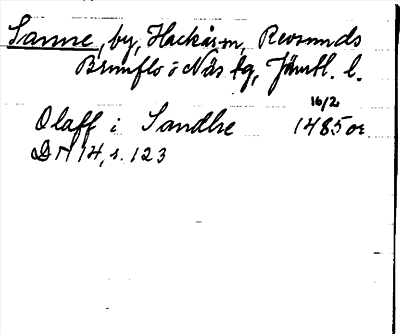 Sanne, by, Hackås sn, Revsunds
Brunflo o Näs tg, Jämtl. l.
16/2
Olaff i Sandhe 1485 or.
DN 14, s. 123